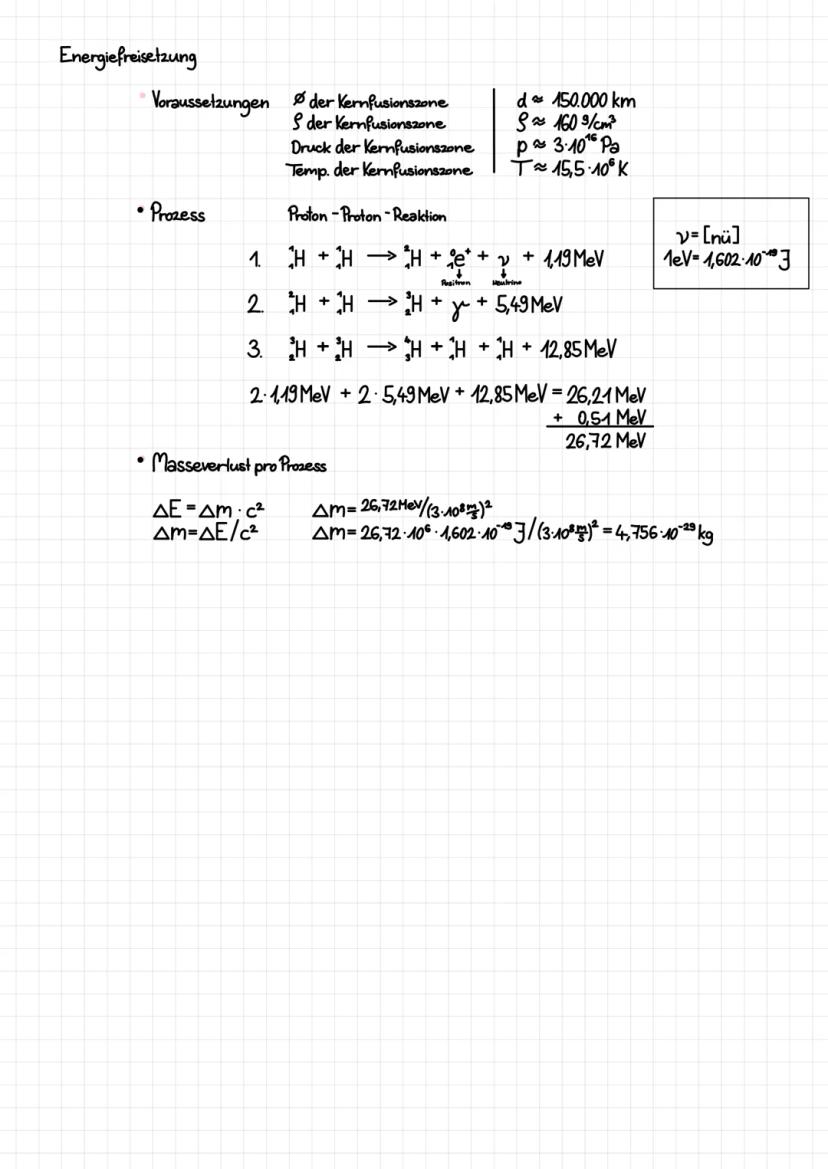 Energiefreisetzung
• Voraussetzungen ⌀ der Kernfusionszone | d ≈ 150.000 km
ρ der Kernfusionszone | ρ ≈ 160 g/cm³
Druck der Kernfusionszone | p ≈ 3·10¹⁶ Pa
Temp. der Kernfusionszone | T ≈ 15,5·10⁶ K
• Prozess Proton-Proton-Reaktion
ν = [nü]
1eV = 1,602·10⁻¹⁹ J
1. ¹₁H + ¹₁H → ²₁H + ⁰₁e⁺ + ν + 1,19 MeV
↓ ↓
Positron Neutrino
2. ²₁H + ¹₁H → ³₂H + γ + 5,49 MeV
3. ³₂H + ³₂H → ⁴₃H + ¹₁H + ¹₁H + 12,85 MeV
2·1,19 MeV + 2·5,49 MeV + 12,85 MeV = 26,21 MeV
+ 0,51 MeV
26,72 MeV
• Masseverlust pro Prozess
ΔE = Δm · c² Δm = 26,72 MeV/(3·10⁸ m/s)²
Δm = ΔE/c² Δm = 26,72·10⁶·1,602·10⁻¹⁹ J/(3·10⁸ m/s)² = 4,756·10⁻²⁹ kg